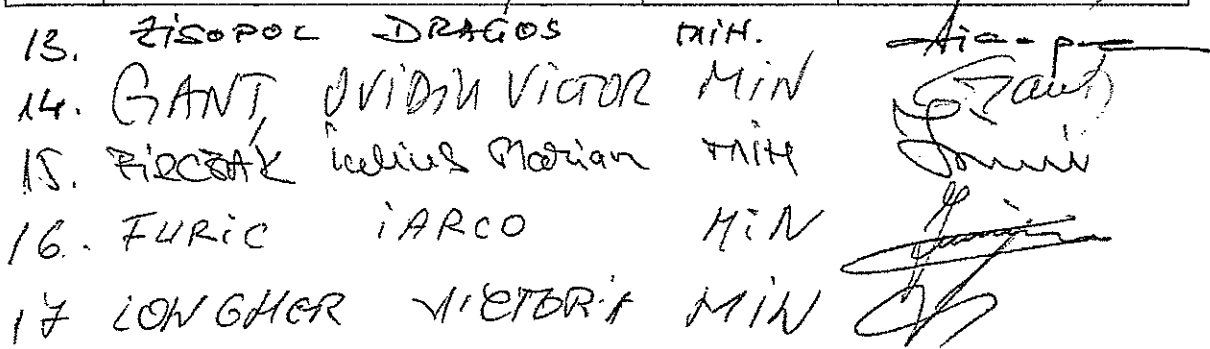 13. ZISOPOL DRAGOS MIN.
14. GANT, OVIDIU VICTOR MIN Gant
15. FIRCZAK Iulius Marian MIN
16. FURIC IARCO MIN
17 LONGHER VICTORIA MIN